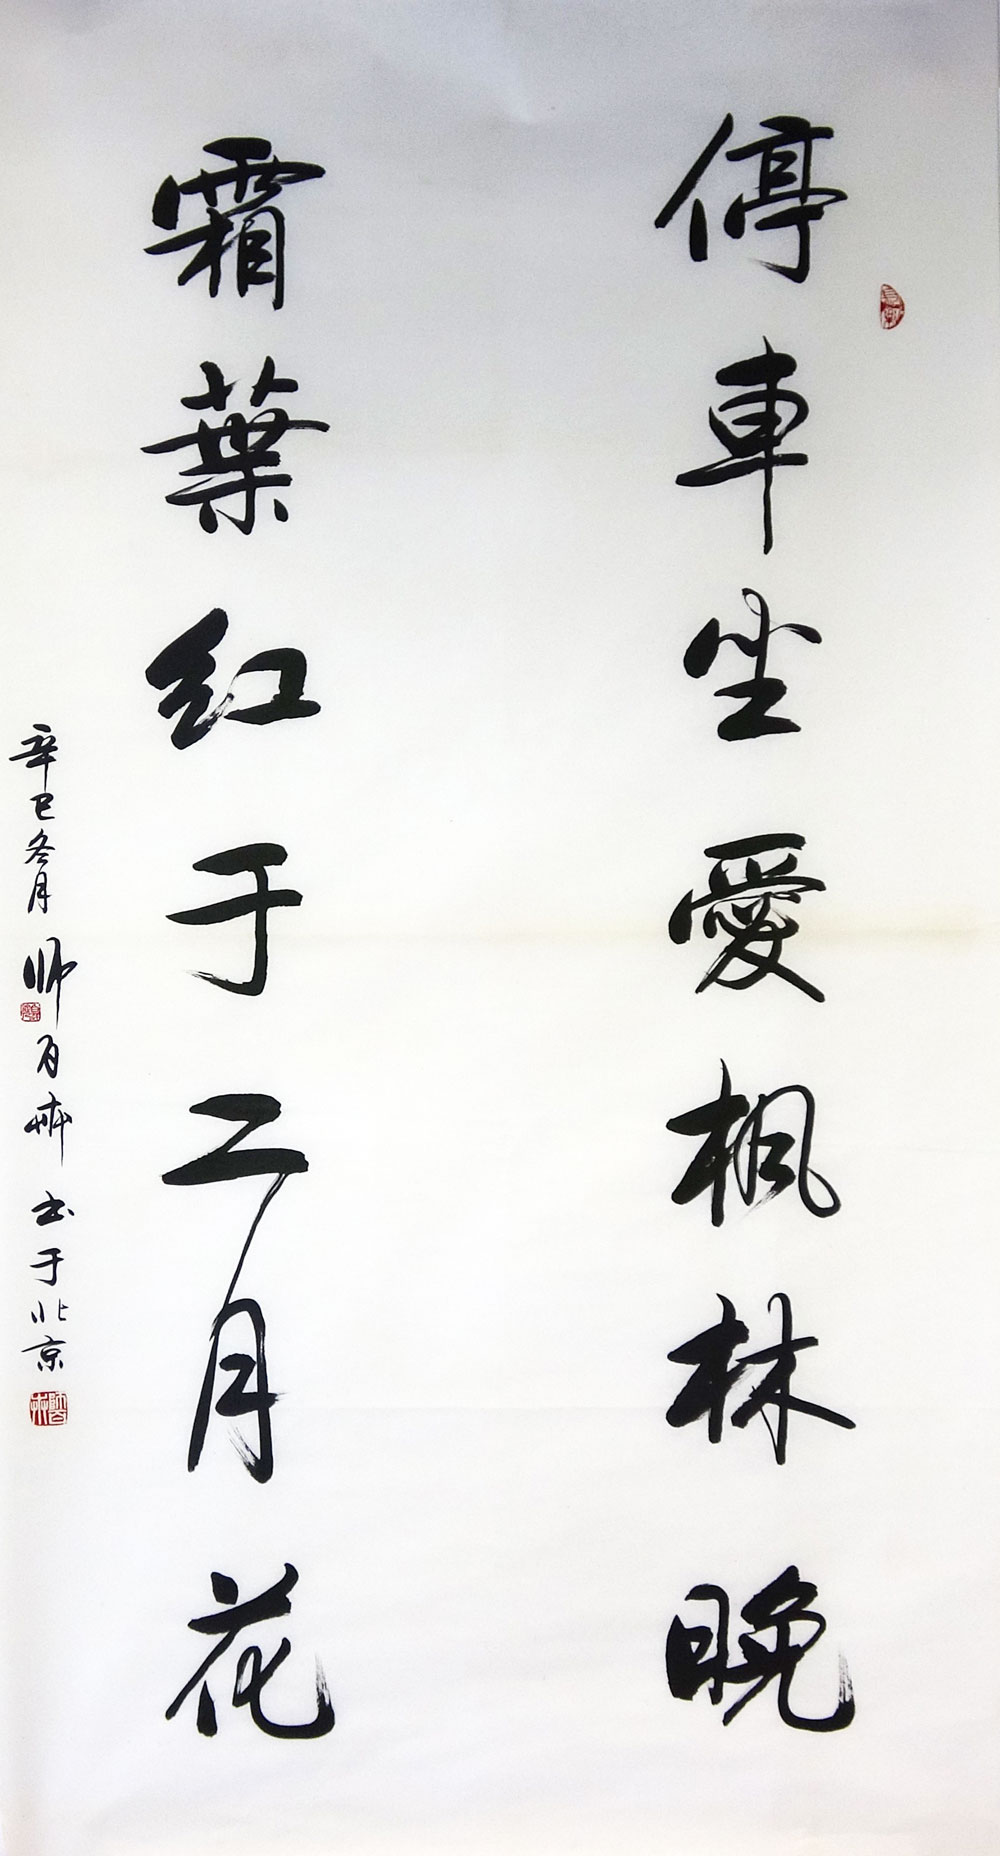 停車坐愛楓林晚
霜葉红于二月花
辛巳冬月
书于北京